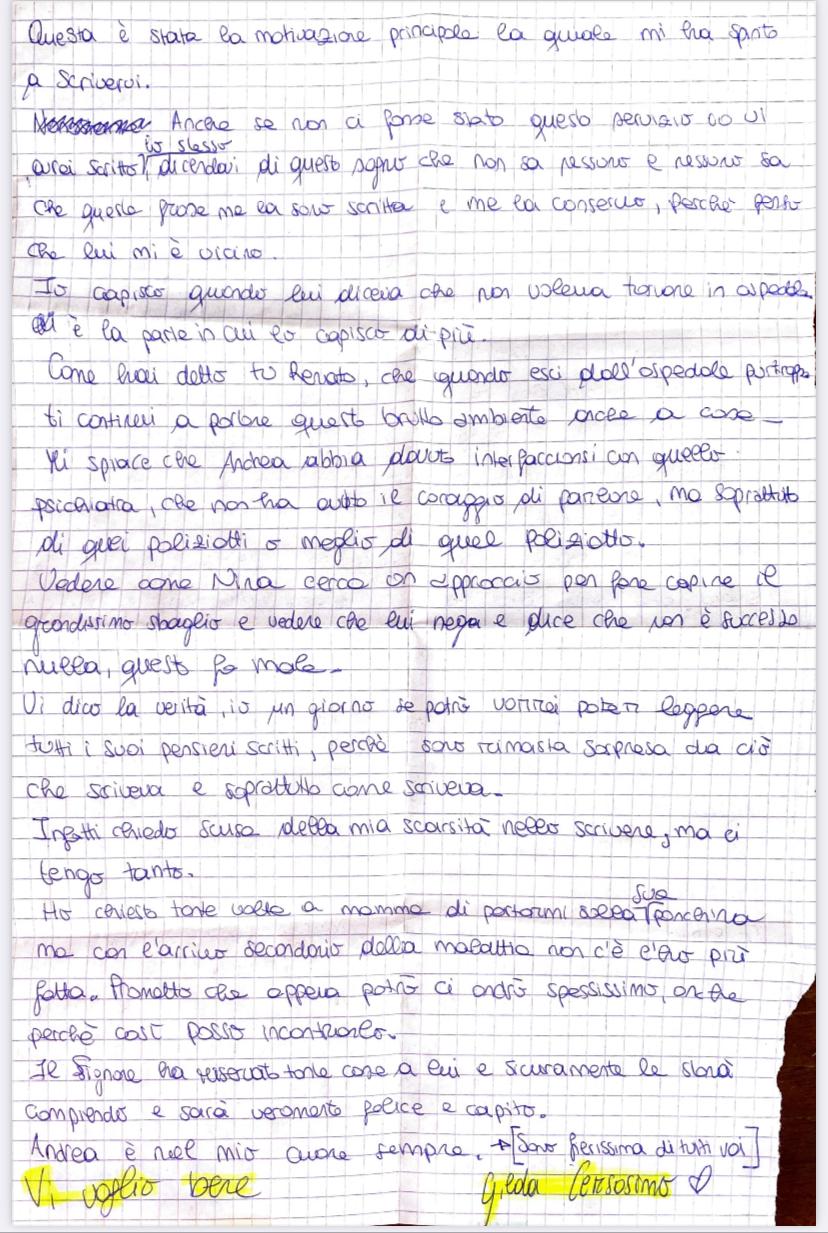 Questa è stata la motivazione principale la quale mi ha spinto
a scrivervi.
Anche se non ci fosse stato questo servizio io vi
io stesso
avrei scritto dicendovi di questo sogno che non sa nessuno e nessuno sa
che queste frase me la sono scritta e me la conservo, perchè penso
che lui mi è vicino.
Io capisco quando lui diceva che non voleva tornare in ospedale
è la parte in cui lo capisco di più.
Come hai detto tu Renato, che quando esci dall'ospedale purtroppo
ti continui a portare questo brutto ambiente anche a casa
Mi spiace che Andrea abbia dovuto interfacciarsi con quello
psichiatra, che non ha avuto il coraggio di parlare, ma soprattutto
di quei poliziotti o meglio di quel poliziotto.
Vedere come Nina cerca un approccio per fare capire il
grandissimo sbaglio e vedere che lui nega e dice che non è successo
nulla, questo fa male.
Vi dico la verità, io un giorno se potrò vorrei poter leggere
tutti i suoi pensieri scritti, perchè sono rimasta sorpresa da ciò
che scriveva e soprattutto come scriveva.
Infatti chiedo scusa della mia scarsità nello scrivere, ma ci
tengo tanto.
sua
Ho chiesto tante volte a mamma di portarmi sulla panchina
ma con l'arrivo secondario della malattia non c'è l'ho più
fatta. Prometto che appena potrò ci andrò spessissimo, anche
perchè così posso incontrarlo.
Il Signore ha riservato tante cose a lui e sicuramente le starà
compiendo e sarà veramente felice e capito.
Andrea è nel mio cuore sempre. → [Sono fierissima di tutti voi]
Vi voglio bene Gilda Cersosimo ♡